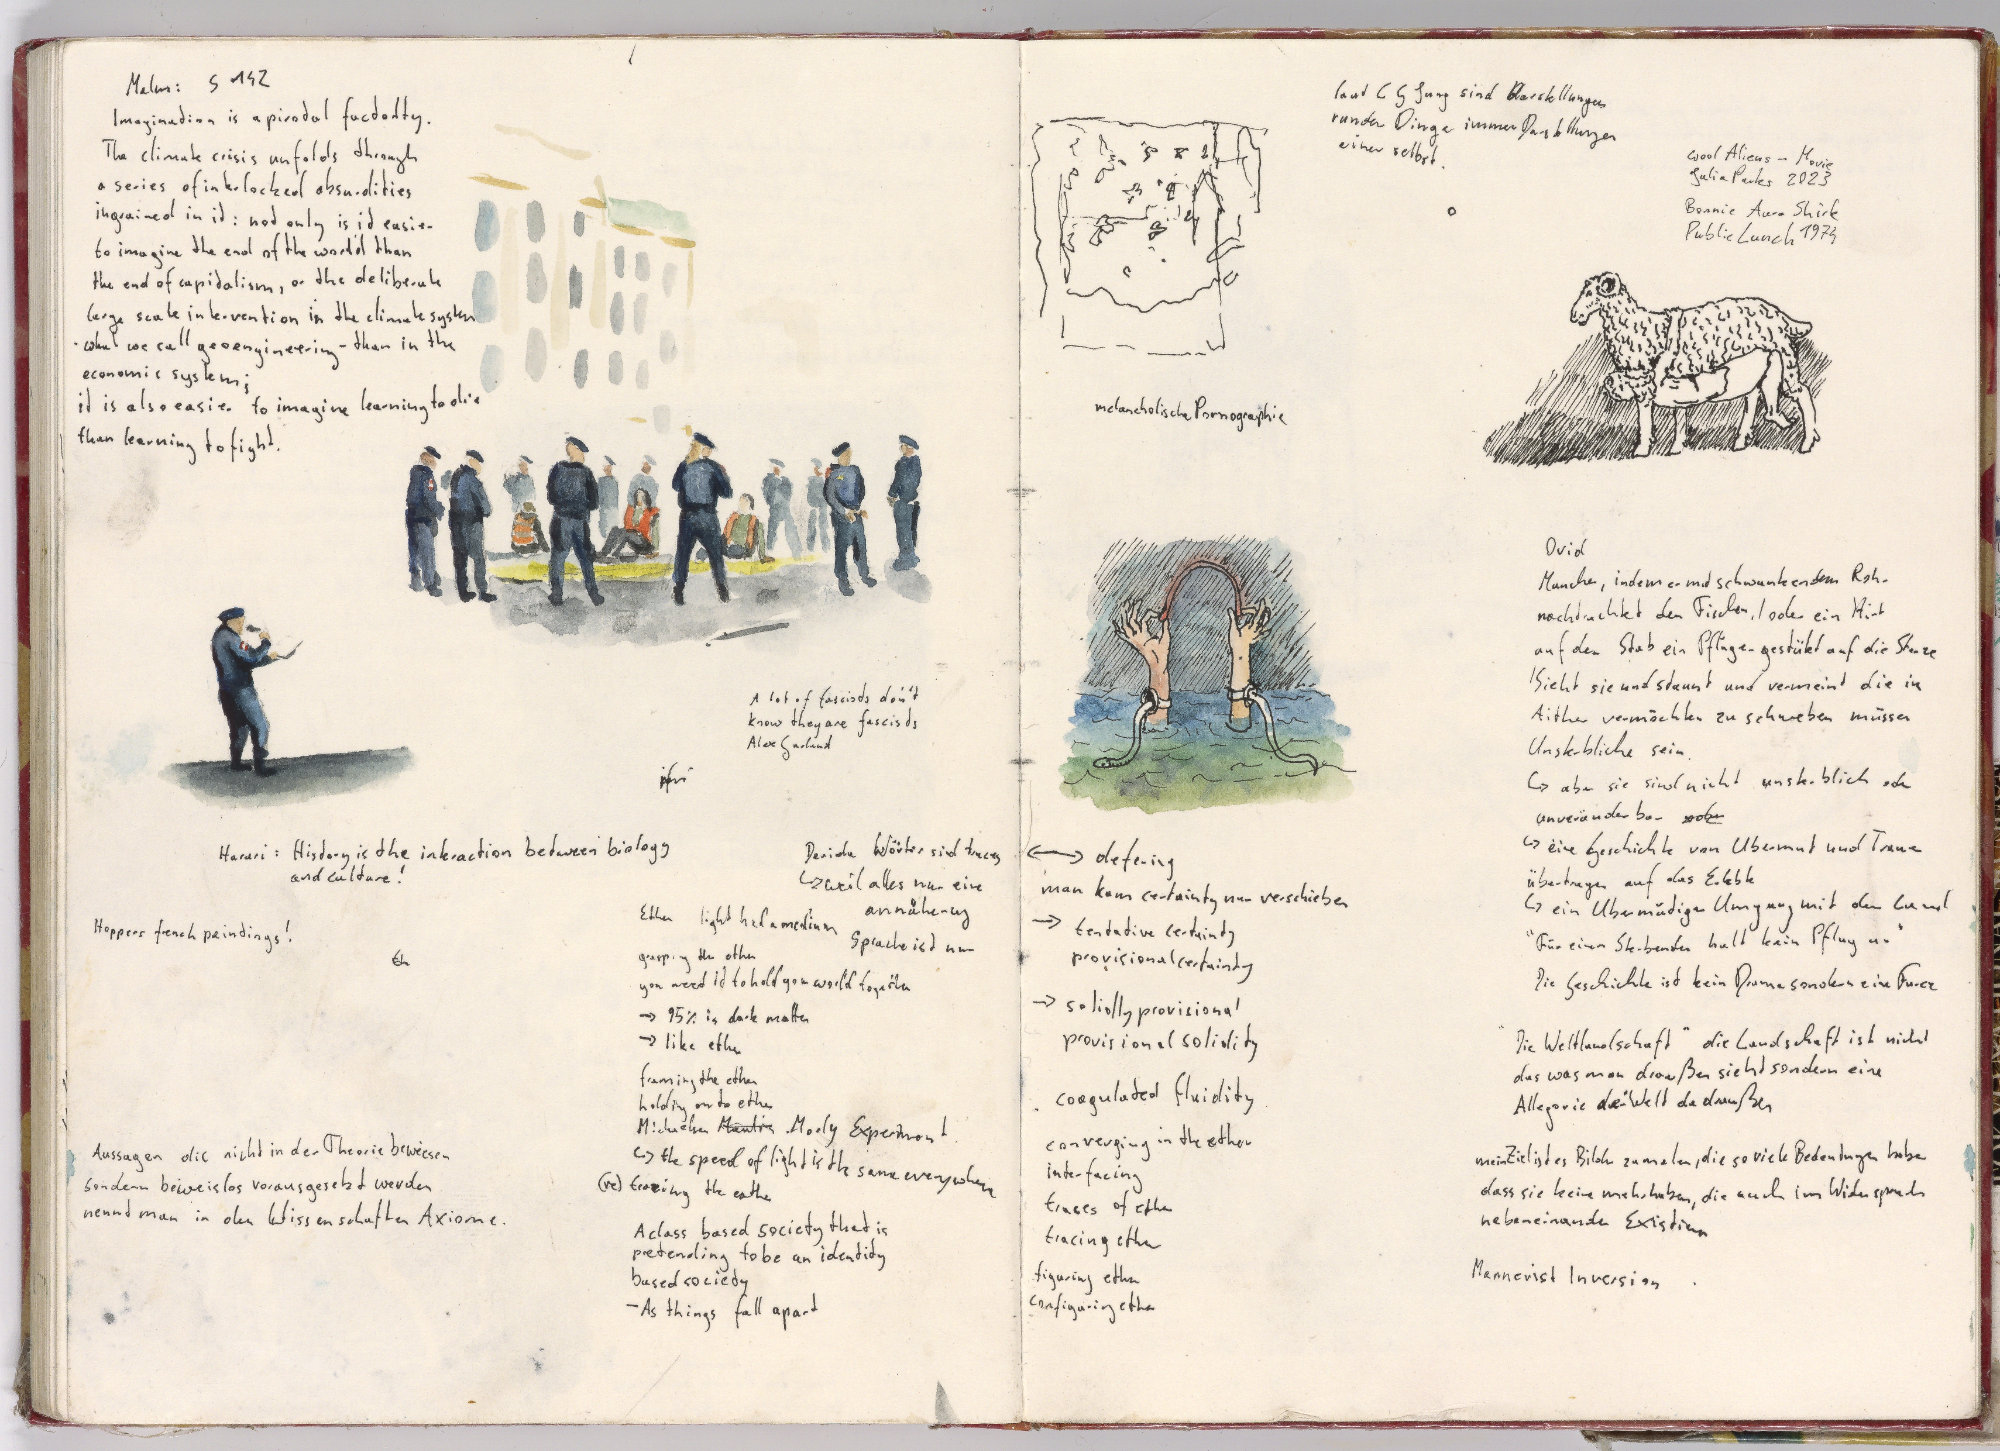 Malm: S 142
Imagination is a pivotal faculty.
The climate crisis unfolds through
a series of interlocked absurdities
ingrained in it: not only is it easier
to imagine the end of the world than
the end of capitalism, or the deliberate
large scale intervention in the climate system
- what we call geoengineering - than in the
economic system;
it is also easier to imagine learning to die
than learning to fight.
A lot of fascists don't
know they are fascists
Alex Garland
Harari: History is the interaction between biology
and culture!
Hoppers french paintings!
Eth
Aussagen die nicht in der Theorie bewiesen
sondern beweislos vorausgesetzt werden
nennt man in den Wissenschaften Axiome.
Derida Wörter sind traces
↳ weil alles nur eine
annäherung
Sprache ist nur
Ether light had a medium
grasping the ether
you need it to hold your world together
→ 95% is dark matter
→ like ether
framing the ether
holding on to ether
Michaelson Morly Experiment
↳ the speed of light is the same everywhere
(re) tracing the eather
A class based society that is
pretending to be an identity
based society
- As things fall apart
laut C G Jung sind Darstellungen
runder Dinge immer Darstellungen
einer selbst.
wool Aliens - Movie
Julia Parks 2023
Bonnie Aura Shirk
Public Lunch 1974
melancholische Pornographie
←→ defering
man kann certainty nur verschieben
→ tentative certainty
provisional certainty
→ solidly provisional
provisional solidity
coagulated fluidity
converging in the ether
interfacing
traces of ether
tracing ether
figuring ether
configuring ether
Ovid
Mancher, indem er mit schwankendem Rohr
nachtrachtet den Fischen, / oder ein Hirt
auf den Stab ein Pflüger gestützt auf die Sterze
/ Sieht sie und staunt und vermeint die in
Aither vermöchten zu schweben müssen
Unsterbliche sein.
↳ aber sie sind nicht unsterblich oder
unveränderbar oder
↳ eine Geschichte von Übermut und Trauer
übertragen auf das Erlebte
↳ ein Übermütiger Umgang mit dem Land
"Für einen Sterbenden halt kein Pflug an"
Die Geschichte ist kein Drama sondern eine Farce
"Die Weltlandschaft" die Landschaft ist nicht
das was man draußen sieht sondern eine
Allegorie der Welt da draußen
mein Ziel ist es Bilder zu malen, die so viele Bedeutungen haben
dass sie keine mehr haben, die auch im Widerspruch
nebeneinander Existieren
Mannerist Inversion